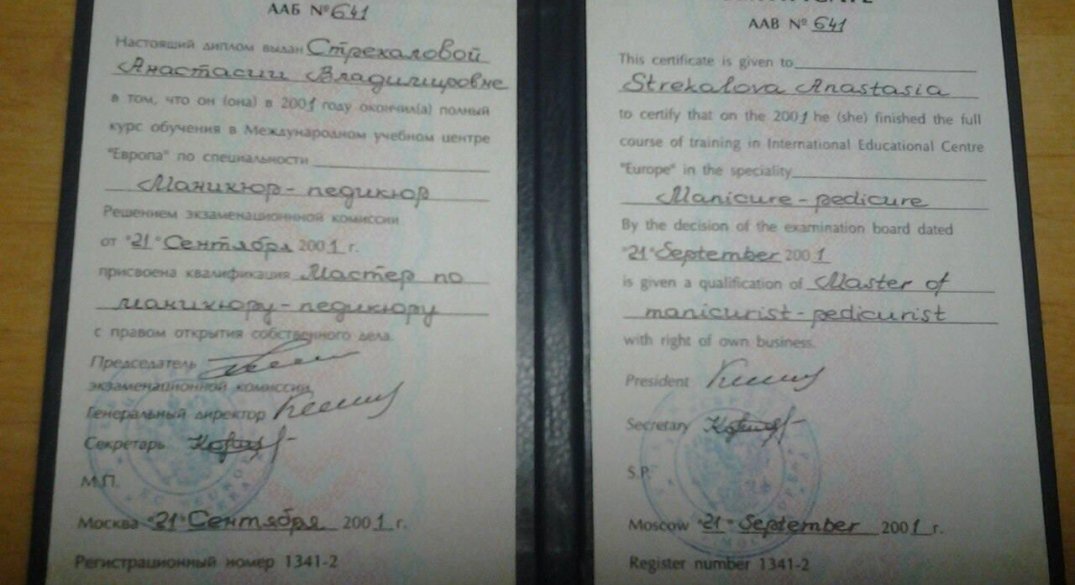 ААБ №641
Настоящий диплом выдан Стрекаловой
Анастасии Владимировне
в том, что он (она) в 2001 году окончил(а) полный
курс обучения в Международном учебном центре
"Европа" по специальности
Маникюр-педикюр
Решением экзаменационнной комиссии
от "21" Сентября 2001 г.
присвоена квалификация Мастер по
маникюру-педикюру
с правом открытия собственного дела.
Председатель
экзаменационной комиссии
Генеральный директор
Секретарь
М.П.
Москва "21" Сентября 2001 г.
Регистрационный номер 1341-2
AAB № 641
This certificate is given to
Strekalova Anastasia
to certify that on the 2001 he (she) finished the full
course of training in International Educational Centre
"Europe" in the speciality
Manicure-pedicure
By the decision of the examination board dated
"21" September 2001
is given a qualification of Master of
manicurist-pedicurist
with right of own business.
President
Secretary
S.P.
Moscow "21" September 2001 г.
Register number 1341-2